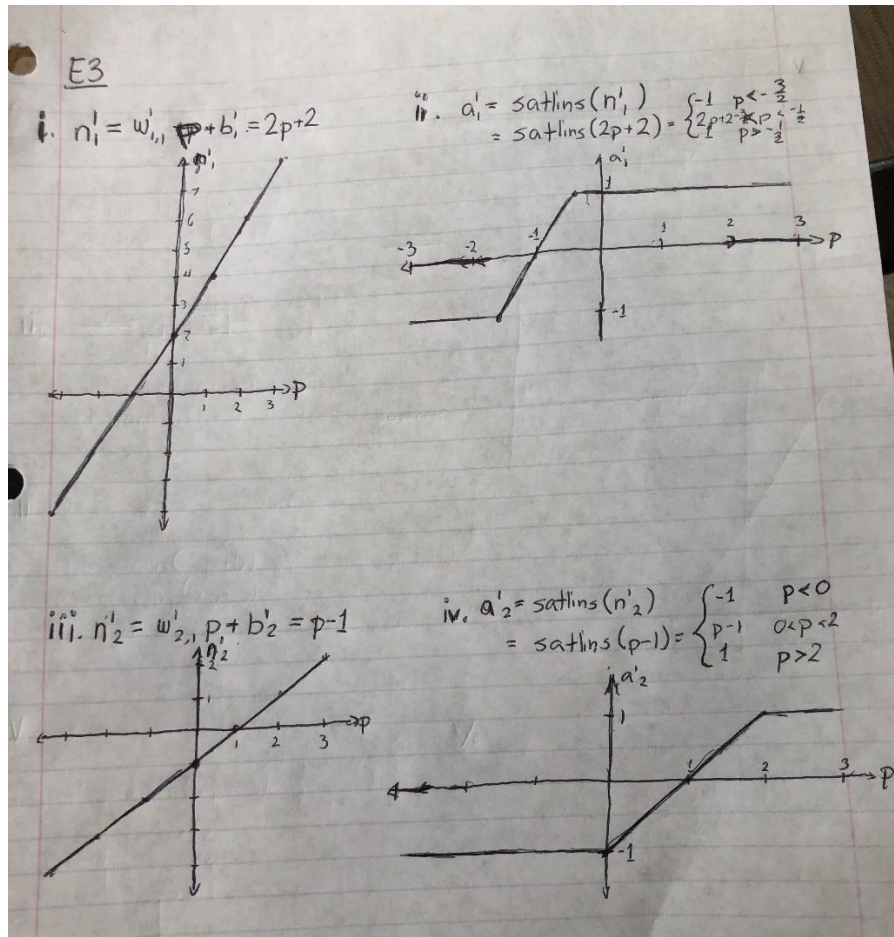 E3
i. n¹₁ = w¹₁,₁ p + b¹₁ = 2p+2
n¹₁
7
6
5
4
3
2
1
1 2 3 p
ii. a¹₁ = satlins(n¹₁)
= satlins(2p+2) = { -1 p<-3/2
2p+2 -3/2<p<-1/2
1 p>-1/2
a¹₁
1
-3 -2 -1 1 2 3 p
-1
iii. n¹₂ = w¹₂,₁ p₁ + b¹₂ = p-1
n¹₂
2
1
1 2 3 p
iv. a¹₂ = satlins(n¹₂)
= satlins(p-1) = { -1 p<0
p-1 0<p<2
1 p>2
a¹₂
1
1 2 3 p
-1